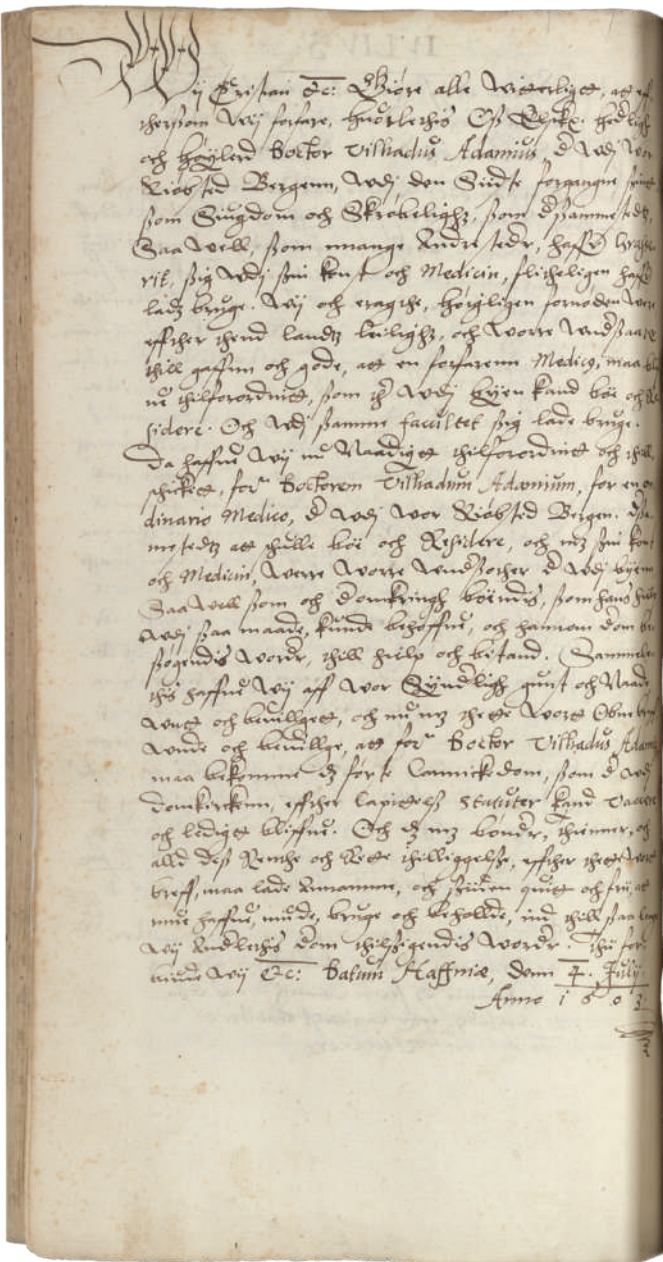 Wij Cristian &c: Giøre alle Witterligtt, att eff
thersom Wij forfare, huorlethis Oss Elske. hederligh
och Høylerd Doctor Vilhadus Adamius, Vdj Vor
Kiøbsted Bergenn, Vdj den Siidste forgangne
som Siugdom och Skrøbelighz, som dsammestedtz,
Saa Well, som mange Andre steder, haffr
sig Vdj sin konst och Medicin, flitheligen haffr
ladz bruge. Wij och eragthe, høygligen fornøden Were
effther thend landtz leilighz, och Worre Vnderssaatter
thill gaffun och gode, att en forfarenn Medico, maa
thilforordnitt, som ther Vdj byen kand boe och Re
sidere. Och Vdj samme facultet sig lade bruge.
Da haffue Wij nu Naadigst thilforordnitt och thill
schickitt, forn Doctorem Vilhadum Adamium, for en or
dinario Medico, Vdj Vor Kiøbsted Bergen. dsa
mestedtz att schulle boe och Residere, och mz sin konst
och Medicin, Werre Worre Vndersother Vdj byenn
Saa Well som och Domkringh boendis, som hans hielp
Vdj saa maade, kunde behøffue, och hannom dom be
søgendis Worder, thill hielp och bistand. Sammele
this haffue Wij aff Vor Synderligh gunst och Naade
Vntt och beuilgett, och nu mz thette Wortt Obne breff
Vnde och beuilge, att forn Doctor Vilhadus Adamius
maa bekomme dz første Cannickedom, som Vdj
Domkirckenn, effther Capittelss Statuter kand Vaa
och ledigtt bliffue. Och dz mz bønder, thienner, och
alld dess Renthe och Rette thilliggelse, effther thette Wort
breff, maa lade Annamme, och siden quitt och frij, att
mue haffue, niude, bruge och beholde, ind thill saa lenge
Wij Anderlethis dom thilsigendis Worder. Thi for
biude Wij &c: Datum Haffniæ, denn 4. Julij
Anno 1603